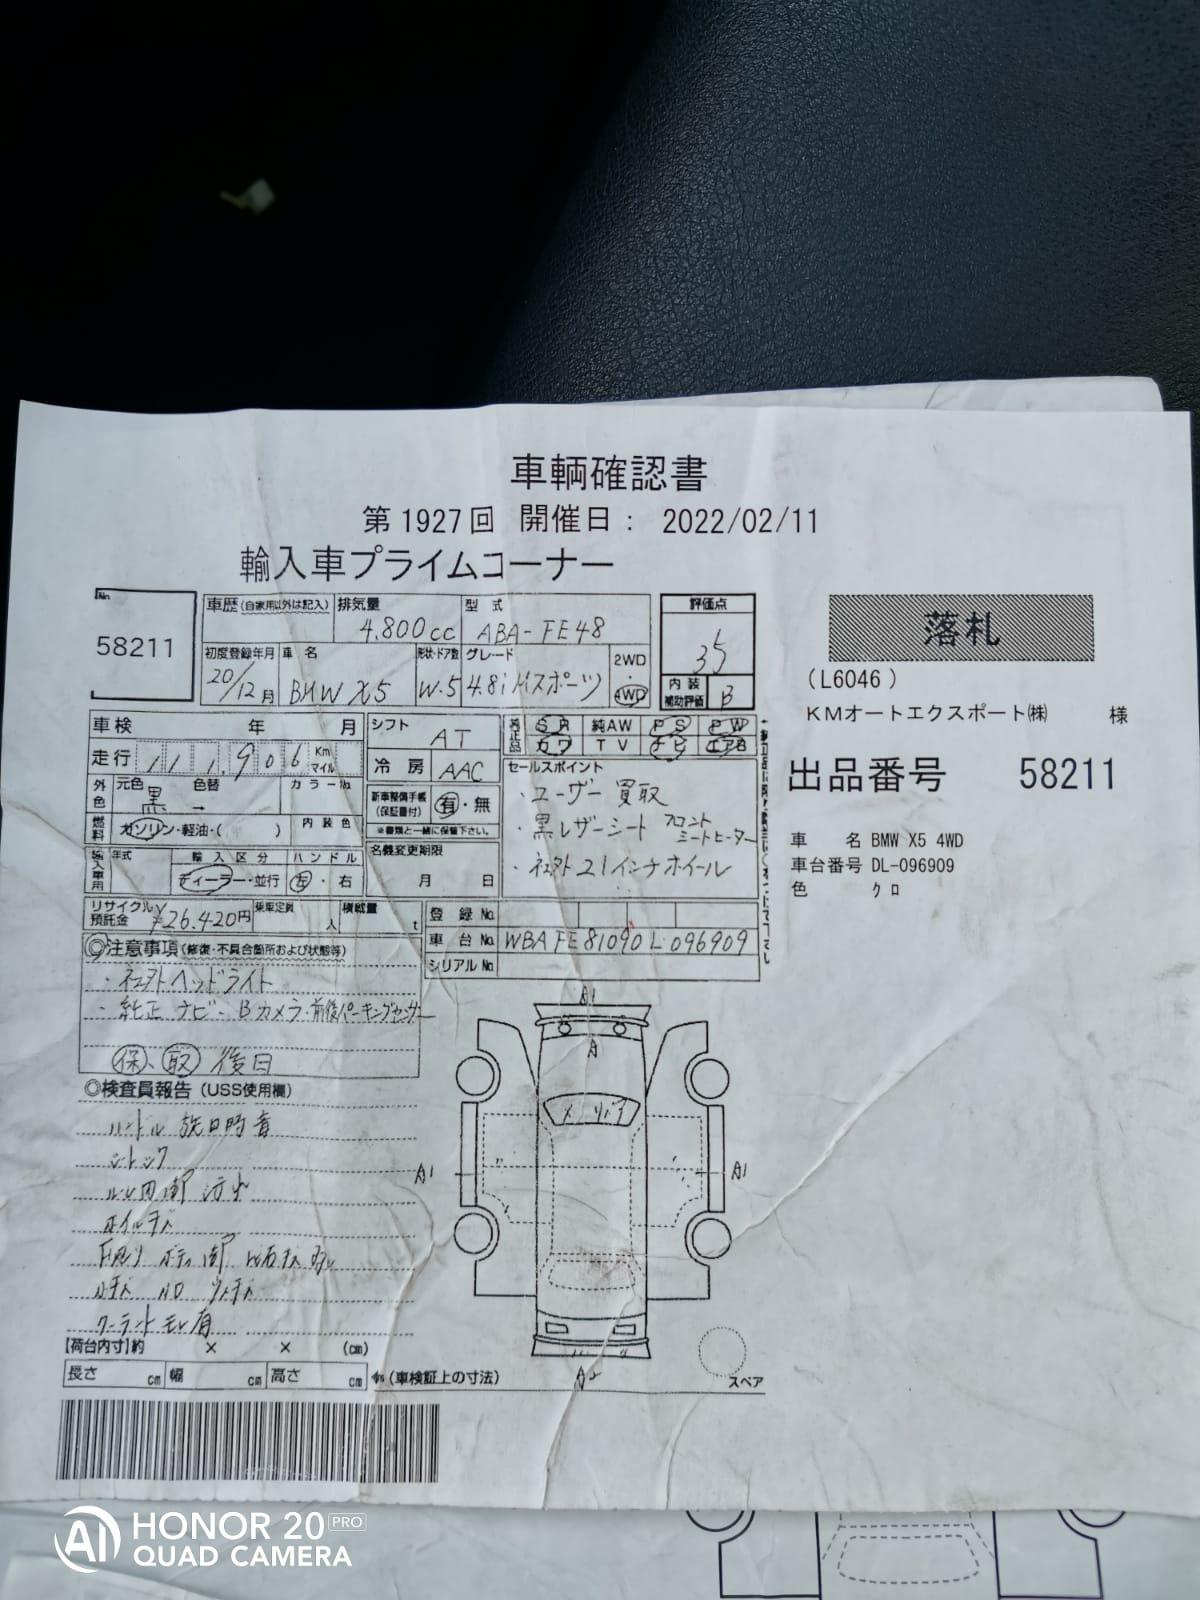 車輌確認書
第 1927 回 開催日： 2022/02/11
輸入車プライムコーナー
No.
58211
車歴 (自家用以外は記入)
排気量
4,800cc
型 式
ABA-FE48
初度登録年月
20/12月
車 名
BMW X5
形状・ドア数
W・5
グレード
4.8i Mスポーツ
2WD
4WD
評価点
35
内装補助評価
B
車検 年 月
走行 111,906 Km マイル
外色
元色 黒
色替 →
カラーNo.
燃料
ガソリン・軽油・( )
内装色
輸入車用
年式
輸入区分
ディーラー・並行
ハンドル
左・右
シフト AT
冷房 AAC
新車整備手帳 (保証書付) 有・無
※書類と一緒に保管下さい。
名義変更期限
月 日
純正品
SR 純AW PS PW
カワ TV ナビ エアB
セールスポイント
・ユーザー買取
・黒レザーシート フロントシートヒーター
・社外21インチホイール
リサイクル預託金 ¥26,420円
乗車定員 人
積載量 t
登録 No.
車台 No. WBAFE81090L096909
シリアル No.
◎注意事項 (修復・不具合箇所および状態等)
・社外ヘッドライト
・純正ナビ・Bカメラ・前後パーキングセンサー
保、取 後日
◎検査員報告 (USS使用欄)
ハンドル
クーラントモレ有
【荷台内寸】約 × × (cm)
長さ cm 幅 cm 高さ cm (車検証上の寸法)
A1
A
A1
A1
A2
スペア
落札
(L6046 )
KMオートエクスポート㈱ 様
出品番号 58211
車 名 BMW X5 4WD
車台番号 DL-096909
色 クロ
AI HONOR 20 PRO
QUAD CAMERA